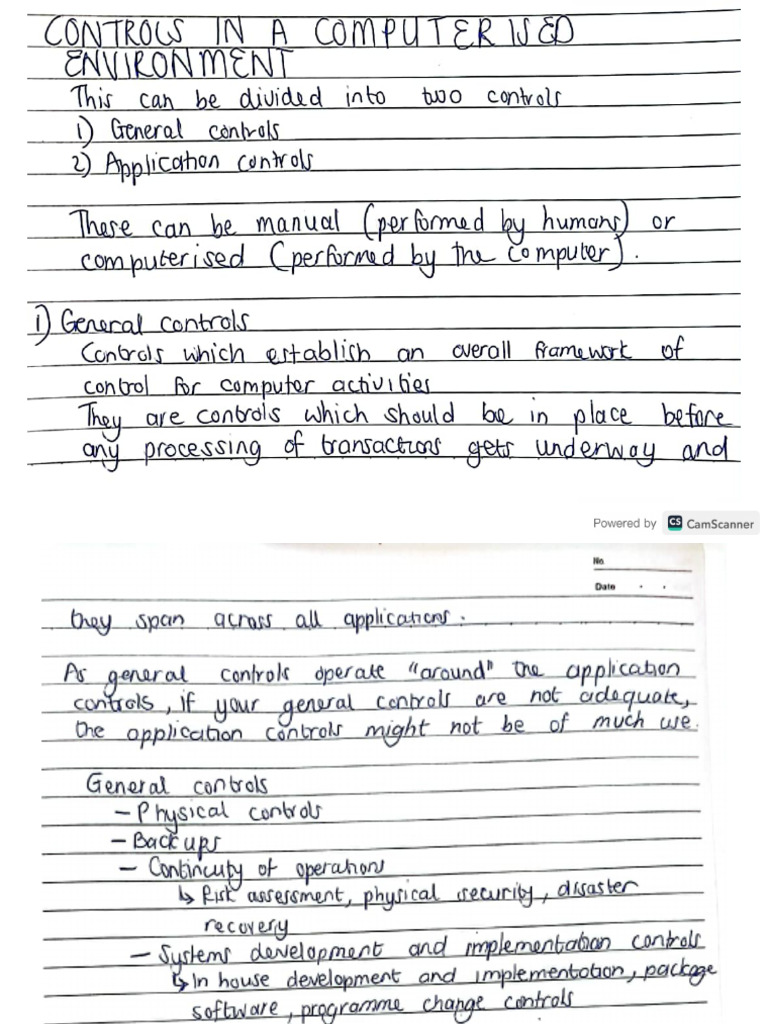 CONTROLS IN A COMPUTERISED
ENVIRONMENT
This can be divided into two controls
1) General controls
2) Application controls
These can be manual (performed by humans) or
computerised (performed by the computer).
1) General controls
Controls which establish an overall framework of
control for computer activities
They are controls which should be in place before
any processing of transactions gets underway and
Powered by CS CamScanner
No
Date . .
they span across all applications.
As general controls operate "around" the application
controls, if your general controls are not adequate,
the application controls might not be of much use.
General controls
- Physical controls
- Back ups
- Continuity of operations
↳ Risk assessment, physical security, disaster
recovery
- Systems development and implementation controls
↳ In house development and implementation, package
software, programme change controls